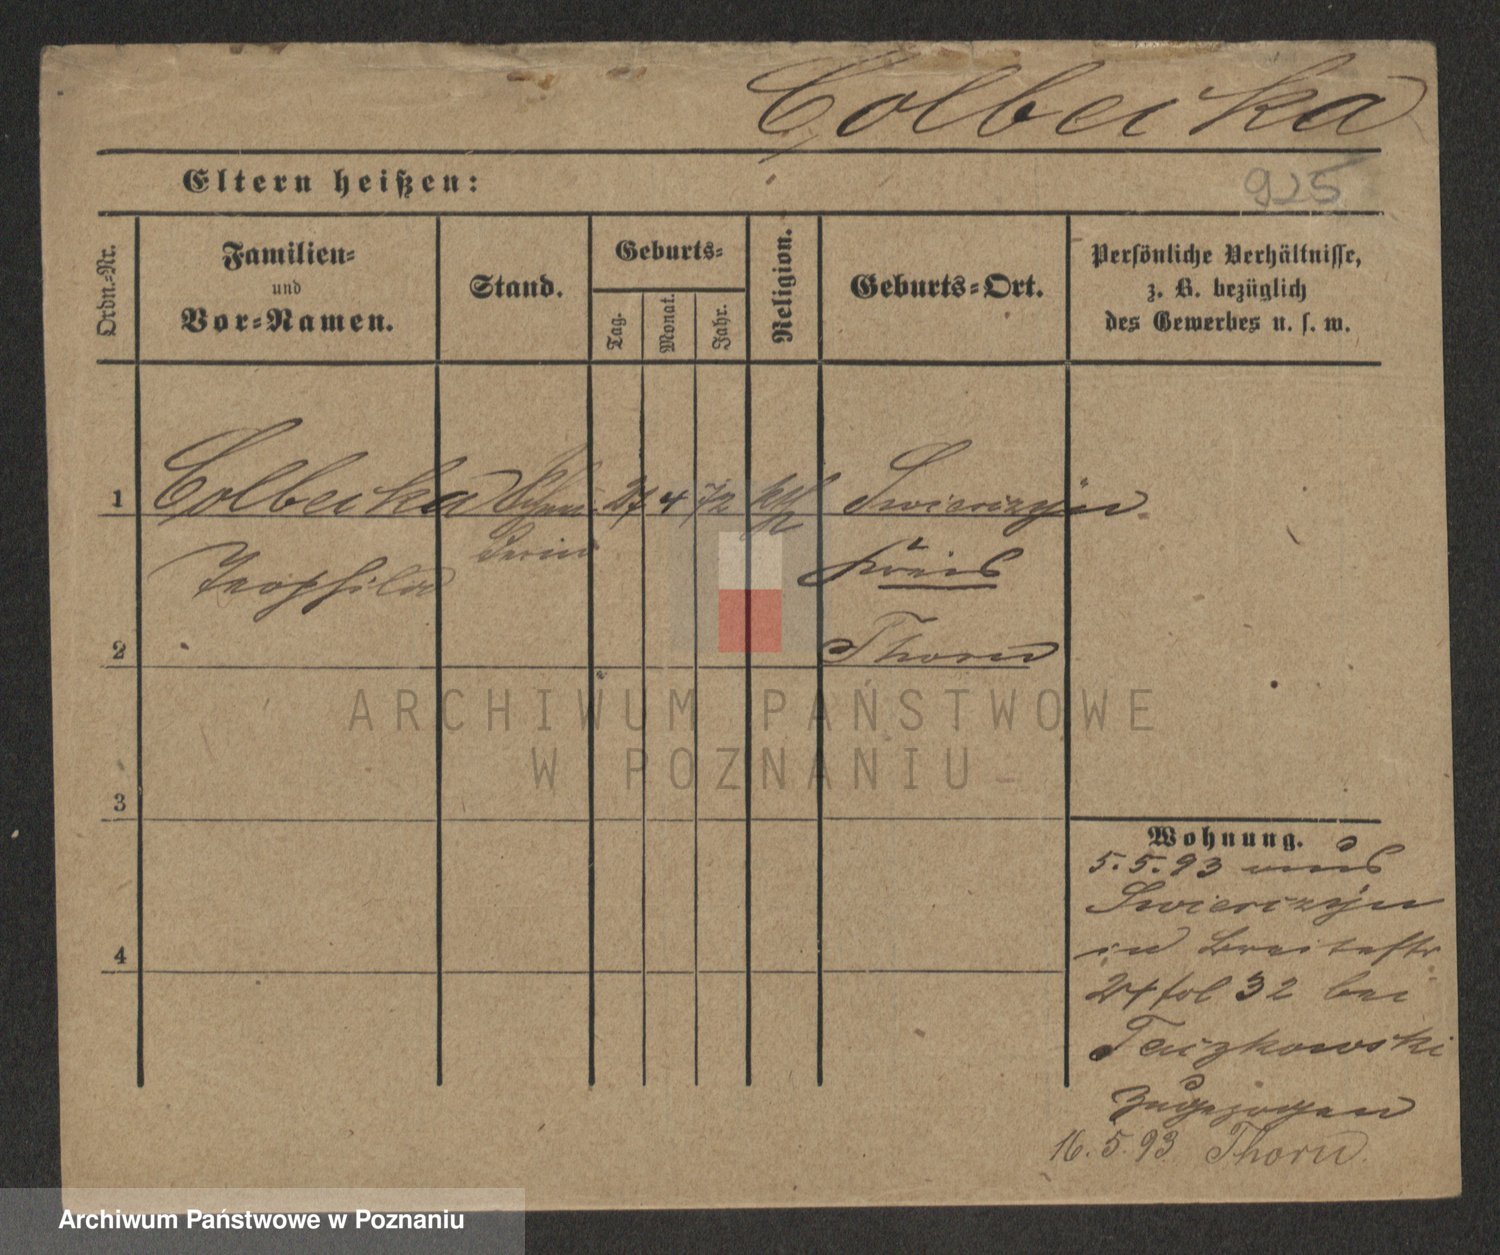 Colbecka
Eltern heißen:
925
Ordn.-Nr.
Familien-
und
Vor-Namen.
Stand.
Geburts-
Tag.
Monat.
Jahr.
Religion.
Geburts-Ort.
Persönliche Verhältnisse,
z. B. bezüglich
des Gewerbes u. s. w.
1
Colbecka
4 72
kth
Swierczyn
Teophila
Kreis
2
Thorn
ARCHIWUM PAŃSTWOWE
W POZNANIU
3
Wohnung.
5.5.93 aus
Swierczyn
in Breitestr
fol 32 bei
Taczkowski
zugezogen
16.5.93 Thorn.
4
Archiwum Państwowe w Poznaniu